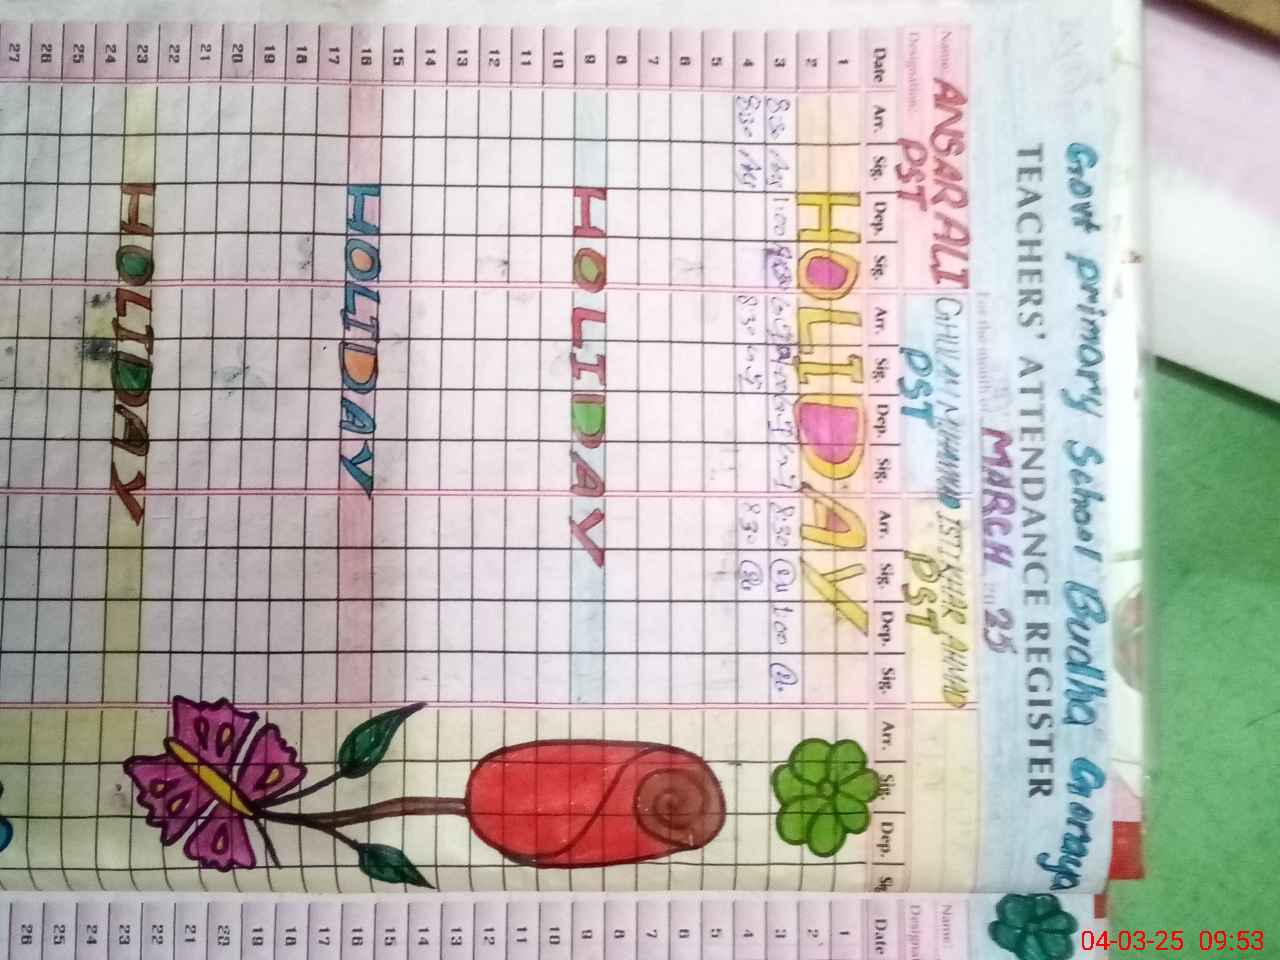 Govt primary School Burdha Goraya
TEACHERS' ATTENDANCE REGISTER
For the month of MARCH 2025
Name: ANSAR ALI GHULAM MUHAMMAD IFTIKHAR AHMAD
Designation: PST PST PST
Date Arr. Sig. Dep. Sig. Arr. Sig. Dep. Sig. Arr. Sig. Dep. Sig. Arr. Sig. Dep. Sig
1
2 HOLIDAY
3 8:30 1:00 8:30 1:00
4 8:30 8:30 8:30
5
6
7
8
9 HOLIDAY
10
11
12
13
14
15
16 HOLIDAY
17
18
19
20
21
22
23 HOLIDAY
24
25
26
27
Name:
Designat
Date
1
2
3
4
5
6
7
8
9
10
11
12
13
14
15
16
17
18
19
20
21
22
23
24
25
26
04-03-25 09:53